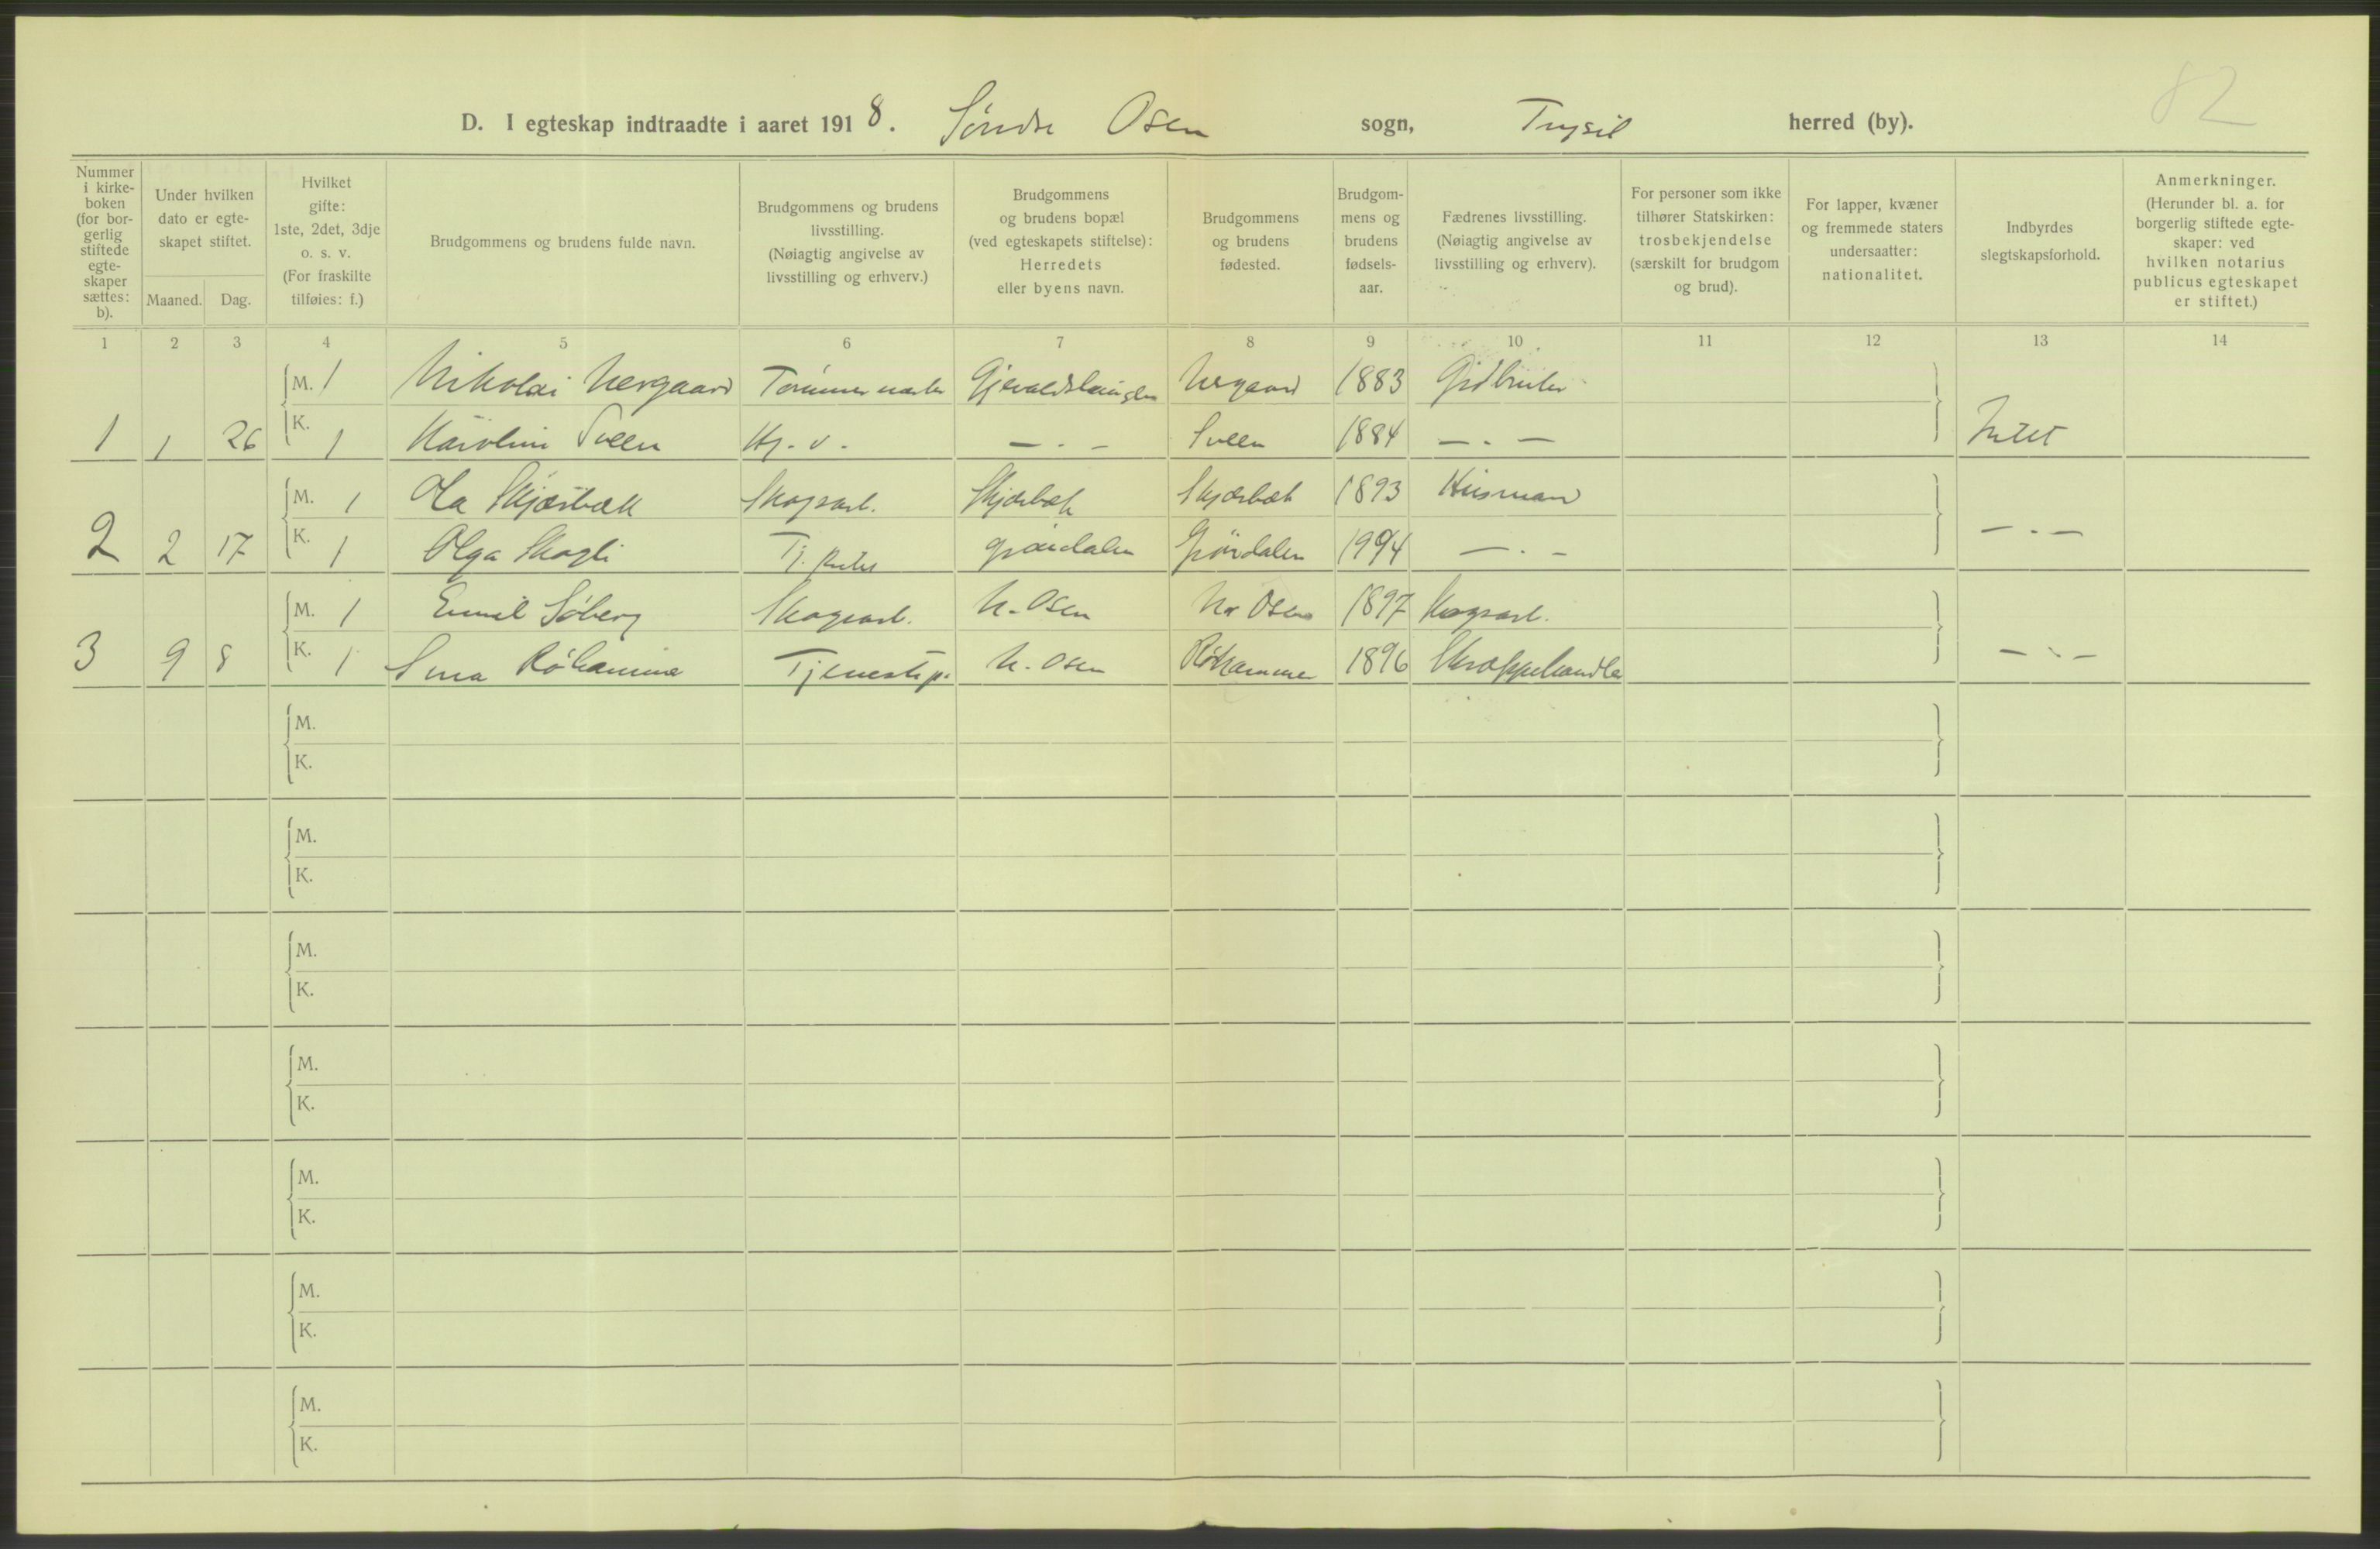 82
D. I egteskap indtraadte i aaret 1918. Søndre Osen sogn, Trysil herred (by).
Nummer i kirke-boken (for bor-gerlig stiftede egte-skaper sættes: b).
Under hvilken dato er egte-skapet stiftet.
Maaned. Dag.
Hvilket gifte: 1ste, 2det, 3dje o. s. v. (For fraskilte tilføies: f.)
Brudgommens og brudens fulde navn.
Brudgommens og brudens livsstilling. (Nøiagtig angivelse av livsstilling og erhverv.)
Brudgommens og brudens bopæl (ved egteskapets stiftelse): Herredets eller byens navn.
Brudgommens og brudens fødested.
Brudgom-mens og brudens fødsels-aar.
Fædrenes livsstilling. (Nøiagtig angivelse av livsstilling og erhverv).
For personer som ikke tilhører Statskirken: trosbekjendelse (særskilt for brudgom og brud).
For lapper, kvæner og fremmede staters undersaatter: nationalitet.
Indbyrdes slegtskapsforhold.
Anmerkninger. (Herunder bl. a. for borgerlig stiftede egte-skaper: ved hvilken notarius publicus egteskapet er stiftet.)
1 2 3 4 5 6 7 8 9 10 11 12 13 14
M. 1 Nikolai Nergaard Tømmermerker Nergaard 1883 Grdbruker
1 1 26 K. 1 Karoline Sveen Hj. v. — . — Sveen 1884 — . — Intet
M. 1 Ola Skjærbæk Skogsarb. Skjærbæk Skjærbæk 1893 Husmand
2 2 17 K. 1 Olga Skogli Tj. pike Grøndalen Grøndalen 1994 — . — — . —
M. 1 Emil Søberg Skogsarb. N. Osen N. Osen 1897 Skogsarb.
3 9 8 K. 1 Røhammer Tjenestep. N. Osen Røhammer 1896 Skræppehandler — . —
M.
K.
M.
K.
M.
K.
M.
K.
M.
K.
M.
K.
M.
K.